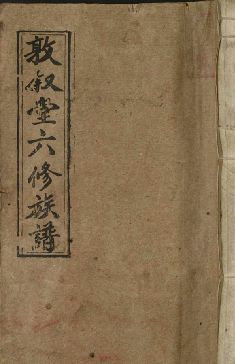 敦叙堂六修族譜